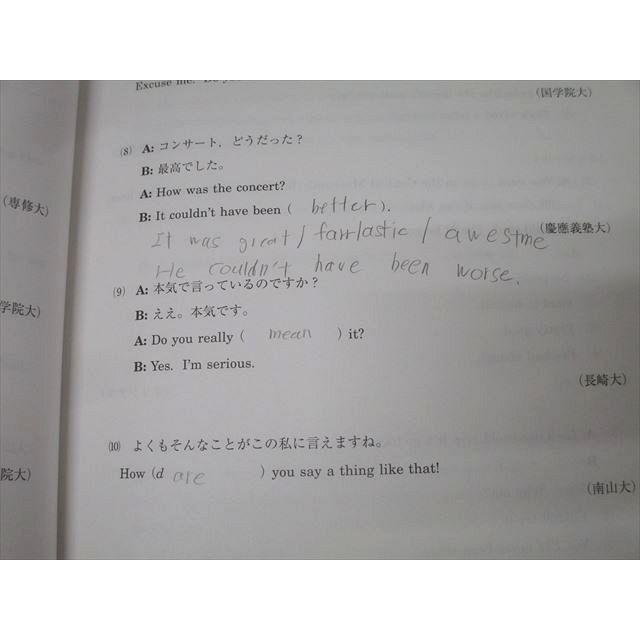 Excuse me.
(国学院大)
(8) A: コンサート，どうだった？
B: 最高でした。
(専修大)
A: How was the concert?
B: It couldn't have been ( better ).
(慶應義塾大)
It was great / fantlastic / awestme
He couldn't have been worse.
(9) A: 本気で言っているのですか？
学院大)
B: ええ。本気です。
A: Do you really ( mean ) it?
B: Yes. I'm serious.
(長崎大)
(10) よくもそんなことがこの私に言えますね。
院大)
How (d are ) you say a thing like that!
(南山大)